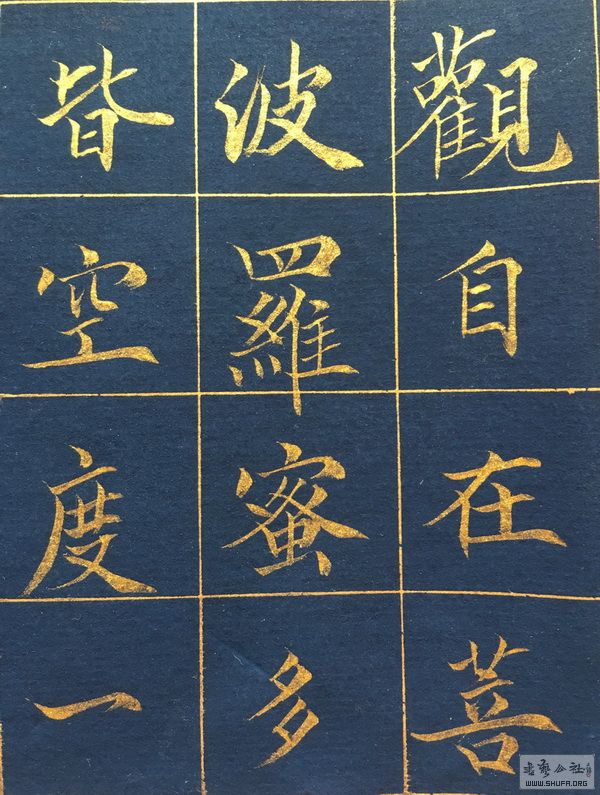 觀自在菩
波羅蜜多
皆空度一
WWW.SHUFA.ORG